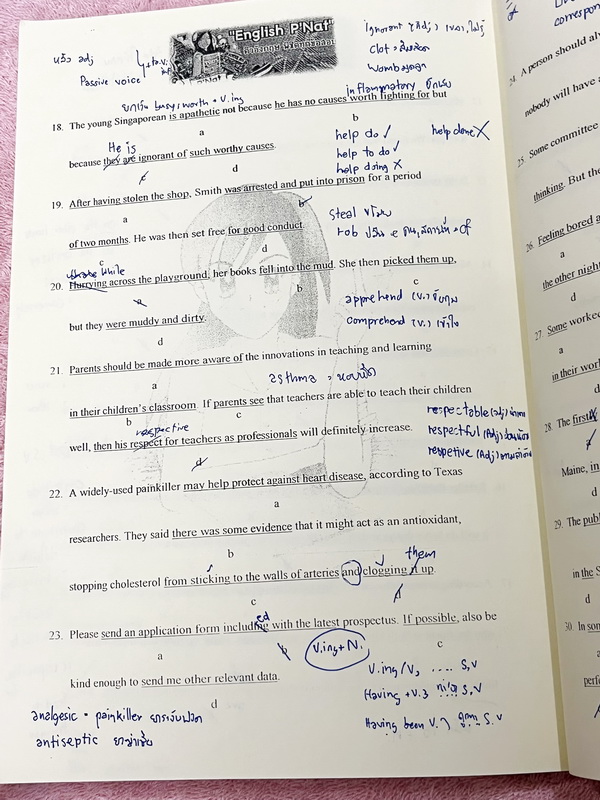 "English P'Nat"
Ignorant (adj)
adj
Passive voice
Clot
busy, worth + V.ing
Inflammatory
18. The young Singaporean is apathetic not because he has no causes worth fighting for but
a
b
He is
because they are ignorant of such worthy causes.
c
d
help do ✓
help done X
help to do ✓
help doing X
19. After having stolen the shop, Smith was arrested and put into prison for a period
a
b
steal ขโมย
of two months. He was then set free for good conduct.
c
d
rob
while
20. Hurrying across the playground, her books fell into the mud. She then picked them up,
a
b
c
but they were muddy and dirty.
d
apprehend (v.) จับกุม
comprehend (v.) เข้าใจ
21. Parents should be made more aware of the innovations in teaching and learning
a
asthma
in their children's classroom. If parents see that teachers are able to teach their children
b
c
respective
respectable (adj)
well, then his respect for teachers as professionals will definitely increase.
d
respectful (Adj)
respetive (Adj)
22. A widely-used painkiller may help protect against heart disease, according to Texas
a
researchers. They said there was some evidence that it might act as an antioxidant,
b
them
stopping cholesterol from sticking to the walls of arteries and clogging it up.
c
d
ed
23. Please send an application form including with the latest prospectus. If possible, also be
a
b
V.ing + N.
c
kind enough to send me other relevant data.
d
V.ing/V3 .... S, V
Having + V.3 S, V
Having been V.3 ถูก S, V
analgesic = painkiller
antiseptic ยาฆ่าเชื้อ
correspon
24. A person should al
nobody will have a
25. Some committee
thinking. But the
26. Feeling bored a
a
the other night
d
27. Some worked
a
in their work
d
28. The first
Maine, in
d
29. The publ
in the S
d
30 In som
a
perfe